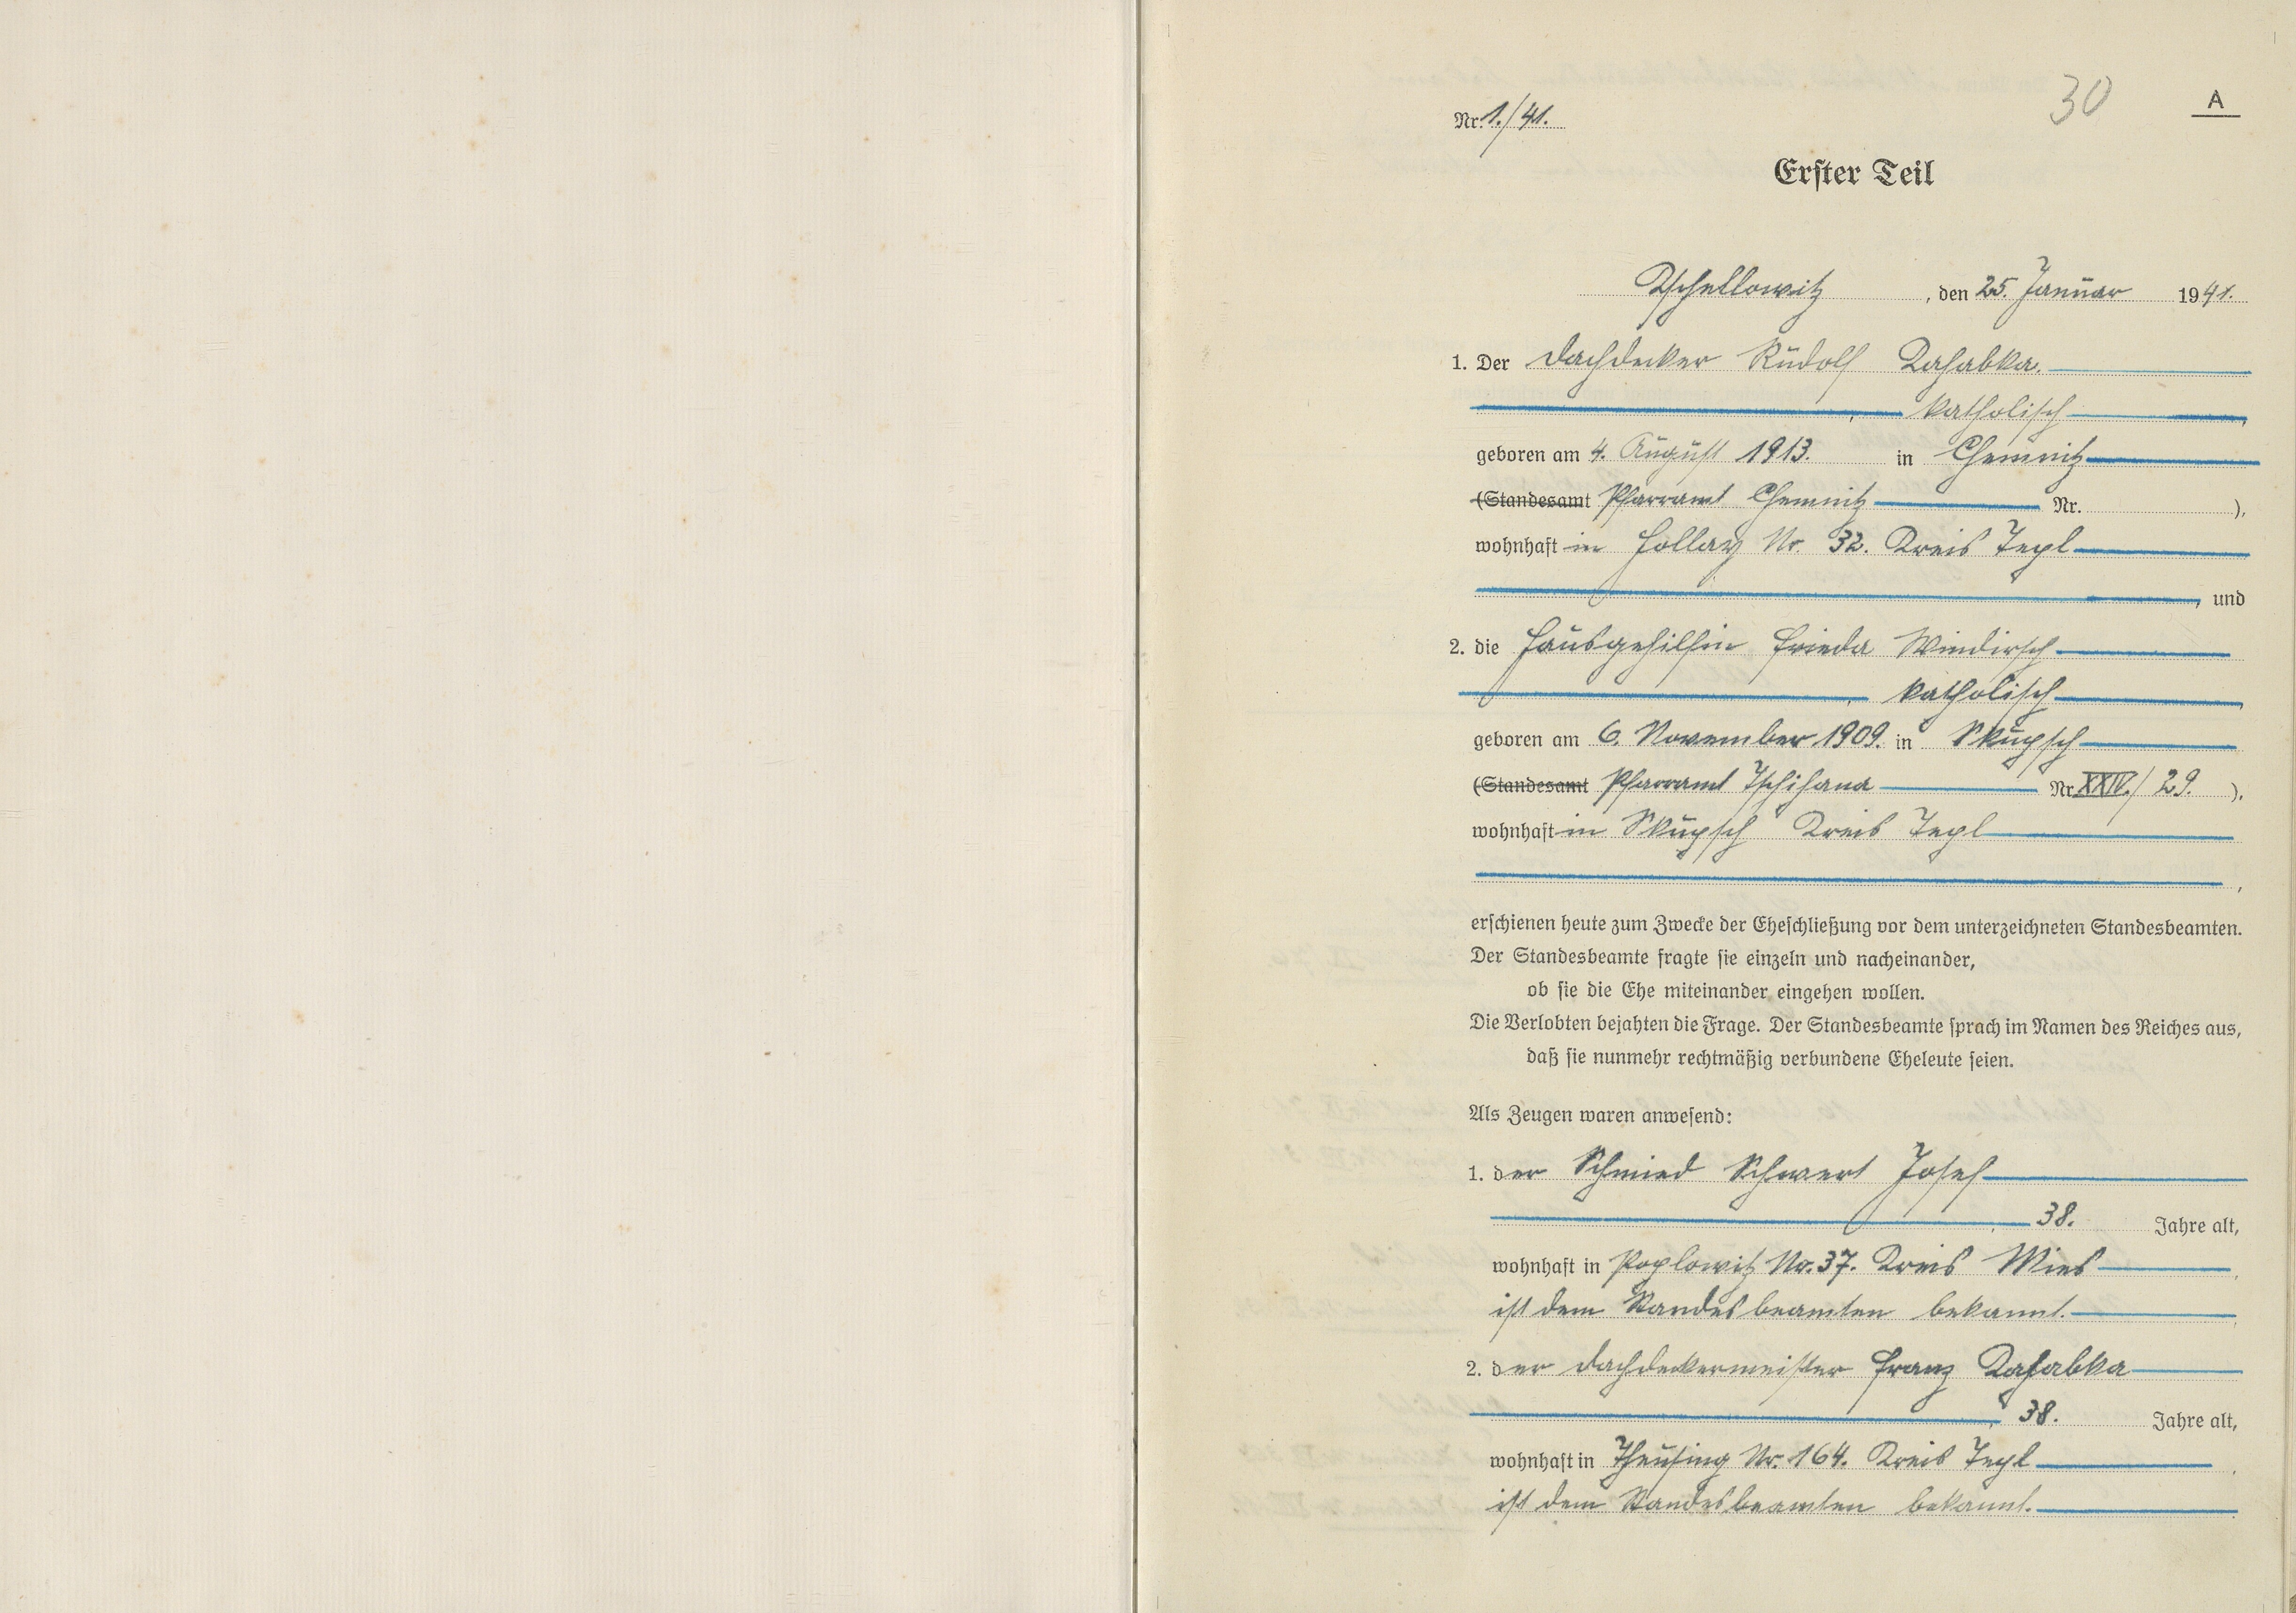 30
A
Nr. 1./41.
Erster Teil
Tschellowitz, den 25. Januar 1941.
1. Der Dachdecker Rudolf Zahabka.
, katholisch,
geboren am 4. August 1913. in Chemnitz
(Standesamt Pfarramt Chemnitz Nr. ),
wohnhaft in Hollay Nr. 32. Kreis Tepl
, und
2. die Hausgehilfin Frieda Windirsch
, katholisch,
geboren am 6. November 1909. in Skupsch
(Standesamt Pfarramt Tschihana Nr. XXIV./29. ),
wohnhaft in Skupsch Kreis Tepl
,
erschienen heute zum Zwecke der Eheschließung vor dem unterzeichneten Standesbeamten.
Der Standesbeamte fragte sie einzeln und nacheinander,
ob sie die Ehe miteinander eingehen wollen.
Die Verlobten bejahten die Frage. Der Standesbeamte sprach im Namen des Reiches aus,
daß sie nunmehr rechtmäßig verbundene Eheleute seien.
Als Zeugen waren anwesend:
1. der Schmied Schwert Josef
, 38. Jahre alt,
wohnhaft in Poplowitz Nr. 37. Kreis Mies,
ist dem Standesbeamten bekannt.
2. der Dachdeckermeister Franz Zahabka
, 38. Jahre alt,
wohnhaft in Theusing Nr. 164. Kreis Tepl,
ist dem Standesbeamten bekannt.